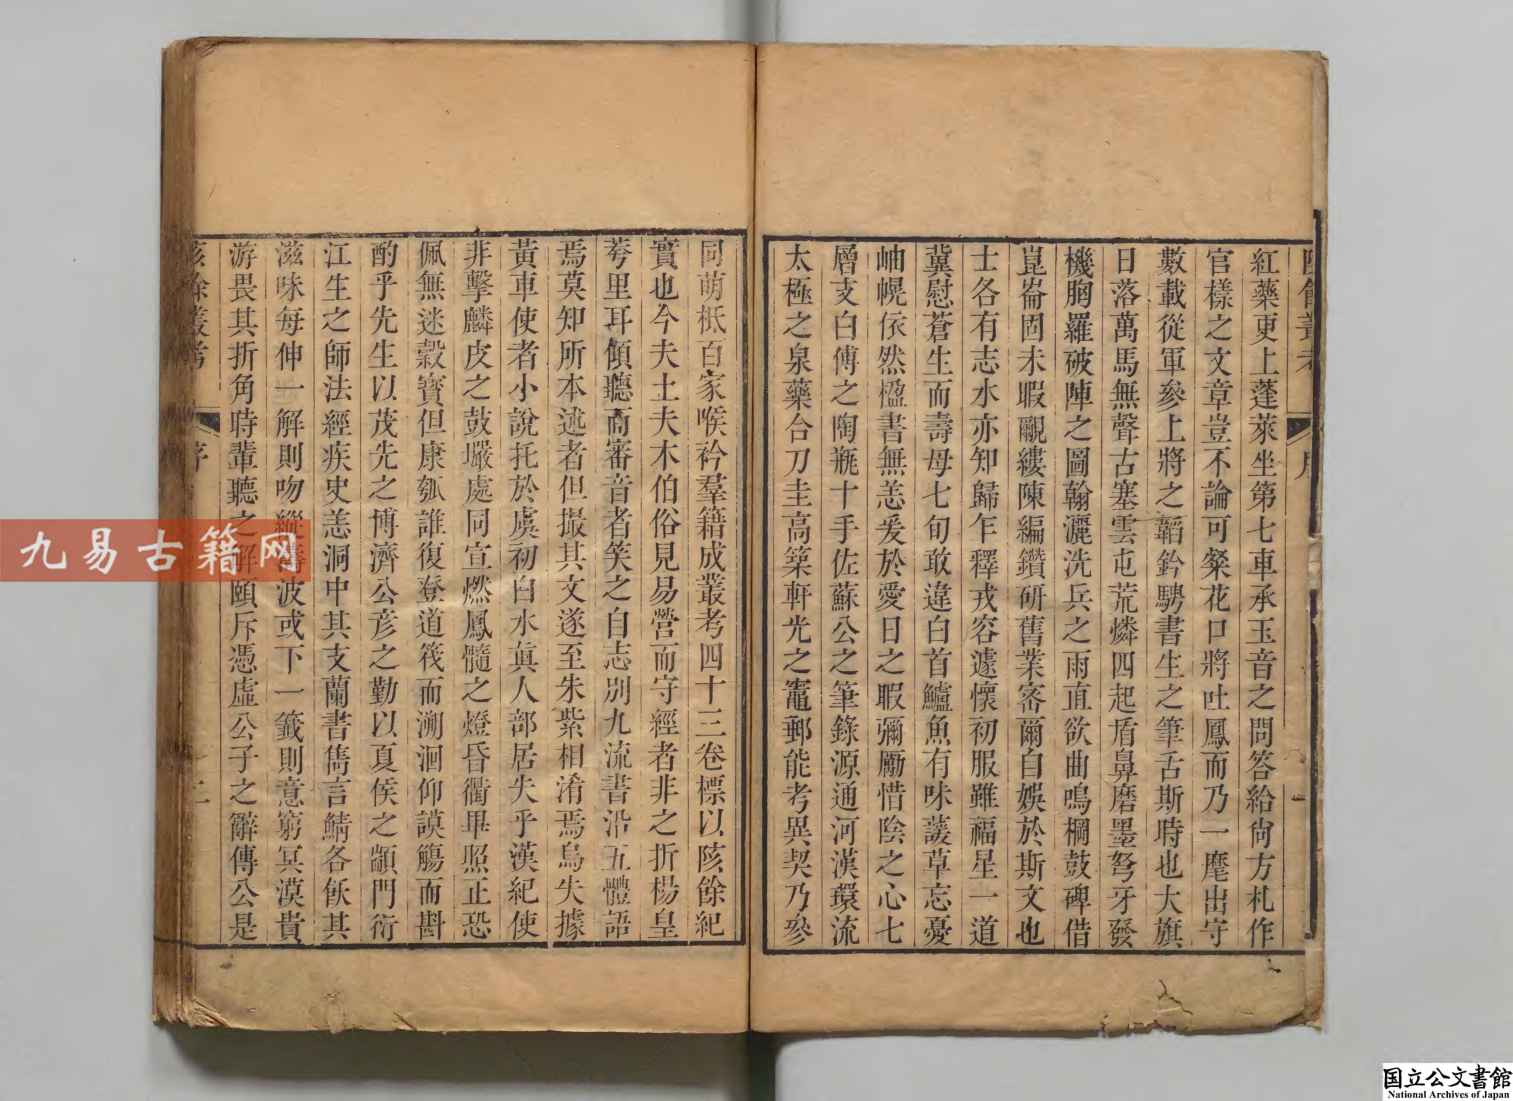 陔餘叢考 序
紅藥更上蓬萊坐第七車承玉音之問答給尙方札作
官樣之文章豈不論可粲花口將吐鳳而乃一麾出守
數載從軍參上將之韜鈐騁書生之筆舌斯時也大旗
日落萬馬無聲古塞雲屯荒燐四起盾鼻磨墨弩牙發
機胸羅破陣之圖翰灑洗兵之雨直欲曲鳴櫚鼓碑借
崑崙固未暇覼縷陳編鑽研舊業審爾自娛於斯文也
士各有志水亦知歸乍釋戎容遽懷初服雖福星一道
冀慰蒼生而壽母七旬敢違白首鱸魚有味諼草忘憂
岫幌依然楹書無恙爰於愛日之暇彌勵惜陰之心七
層支白傅之陶瓶十手佐蘇公之筆錄源通河漢環流
太極之泉藥合刀圭高築軒光之竈郵能考異契乃參
同萌柢百家喉衿羣籍成叢考四十三卷標以陔餘紀
實也今夫士夫木伯俗見易營而守經者非之折楊皇
荂里耳傾聽而審音者笑之自志別九流書沿五體語
焉莫知所本述者但撮其文遂至朱紫相淆焉烏失據
黃車使者小說托於虞初白水眞人部居失乎漢紀使
非擊麟皮之鼓壧處同宣燃鳳髓之燈昏衢畢照正恐
佩無迷榖寶但康瓠誰復登道筏而溯洄仰謨觴而斟
酌乎先生以茂先之博濟公彥之勤以夏侯之顓門衍
江生之師法經疾史恙洞中其支蘭書儁言鯖各飫其
滋味每伸一解則吻縱 波或下一籤則意窮冥漠貴
游畏其折角時輩聽之解頤斥憑虛公子之辭傳公是
陔餘叢考 序 二
九易古籍网
国立公文書館
National Archives of Japan